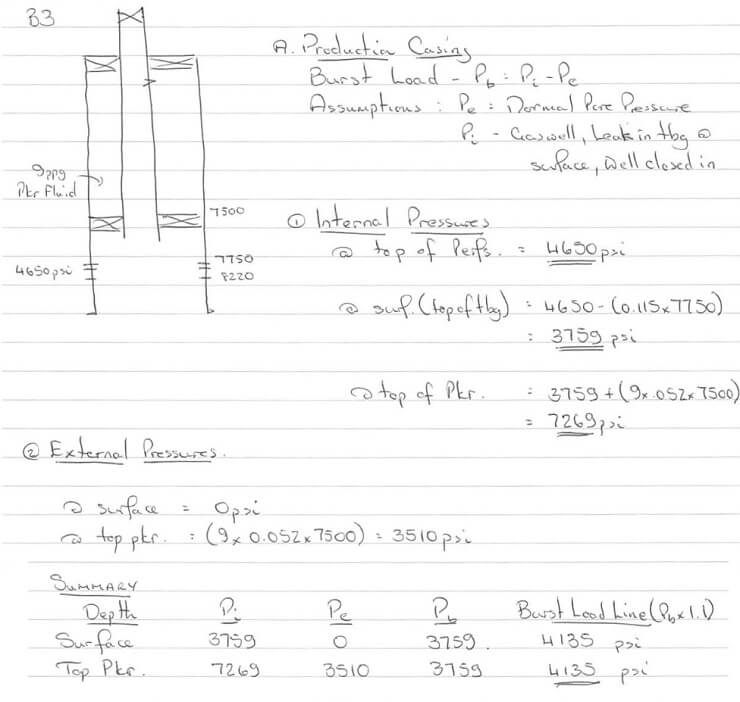 B3
A. Production Casing
Burst Load - Pb : Pi - Pe
Assumptions : Pe = Normal Pore Pressure
Pi - Gaswell, Leak in tbg @
surface, Well closed in
9ppg
Pkr Fluid
7500
7750
8220
4650psi
① Internal Pressures
@ top of Perfs. = 4650 psi
@ surf. (top of tbg) = 4650 - (0.115 x 7750)
: 3759 psi
@ top of Pkr. = 3759 + (9 x .052 x 7500)
= 7269 psi
② External Pressures.
@ surface = 0psi
@ top pkr. : (9 x 0.052 x 7500) = 3510 psi
SUMMARY
Depth Pi Pe Pb Burst Load Line (Pb x 1.1)
Surface 3759 0 3759. 4135 psi
Top Pkr. 7269 3510 3759 4135 psi